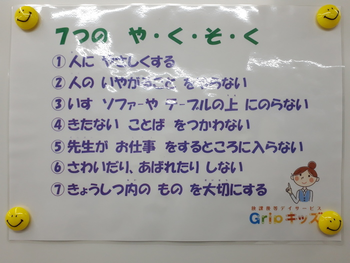 7つの や・く・そ・く
①人に やさしくする
②人の いやがること を やらない
③いす ソファーや テーブルの上 にのらない
④きたない ことば をつかわない
⑤先生が お仕事 をするところに入らない
⑥さわいだり、あばれたり しない
⑦きょうしつ内の もの を大切にする
放課後等デイサービス
Grioキッズ